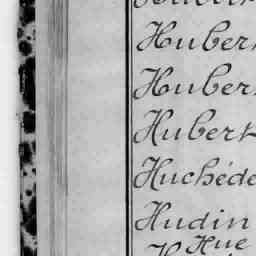 Huber
Huber
Hubert
Huchéde
Hudin
Hue